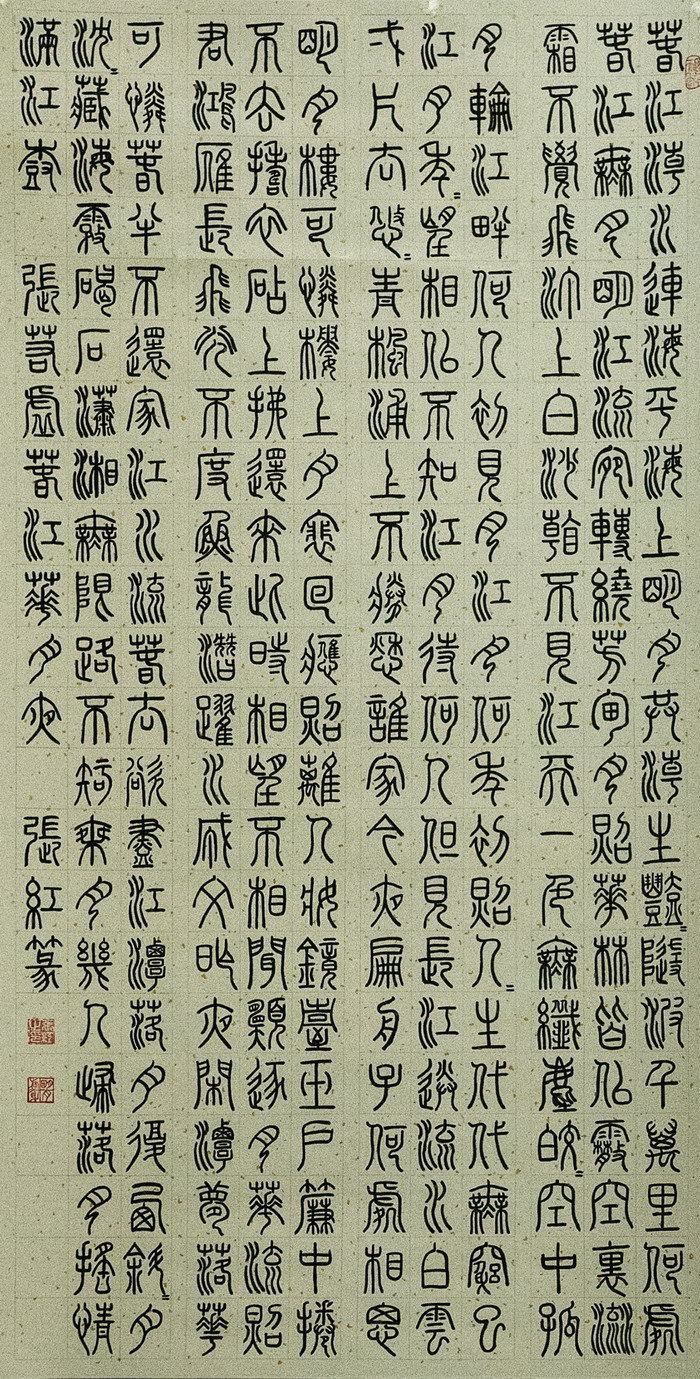 春江潮水連海平海上明月共潮生灩=隨波千萬里何處
春江無月明江流宛轉繞芳甸月照華林皆似霰空裏流
霜不覺飛汀上白沙看不見江天一色無纖塵皎=空中孤
月輪江畔何人初見月江月何年初照人=生代代無窮已
江月年=望相似不知江月待何人但見長江送流水白雲
弌片去悠=青楓浦上不勝愁誰家今夜扁舟子何處相思
明月樓可憐樓上月裵回應照離人妝鏡臺玉戶簾中捲
不去擣衣砧上拂還來此時相望不相聞願逐月華流照
君鴻雁長飛光不度魚龍潛躍水成文昨夜閒潭夢落華
可憐春半不還家江水流春去欲盡江潭落月復西斜=月
沈=藏海霧碣石瀟湘無限路不知乘月幾人歸落月搖情
滿江樹 張若虛春江華月夜 張紅篆